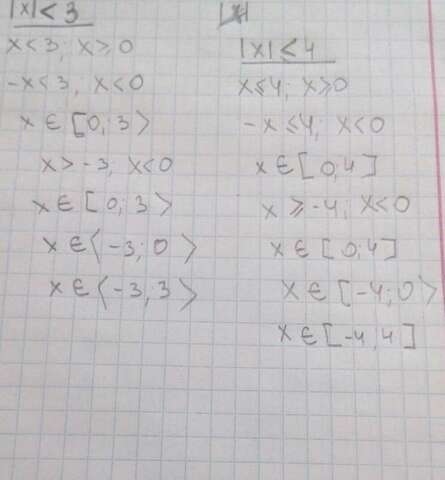 |x| < 3
x < 3; x ≥ 0
-x < 3, x < 0
x ∈ [0; 3⟩
x > -3; x < 0
x ∈ [0; 3⟩
x ∈ ⟨-3; 0⟩
x ∈ ⟨-3, 3⟩
|x| ≤ 4
x ≤ 4; x ≥ 0
-x ≤ 4; x < 0
x ∈ [0; 4]
x ≥ -4; x < 0
x ∈ [0; 4]
x ∈ [-4; 0⟩
x ∈ [-4, 4]